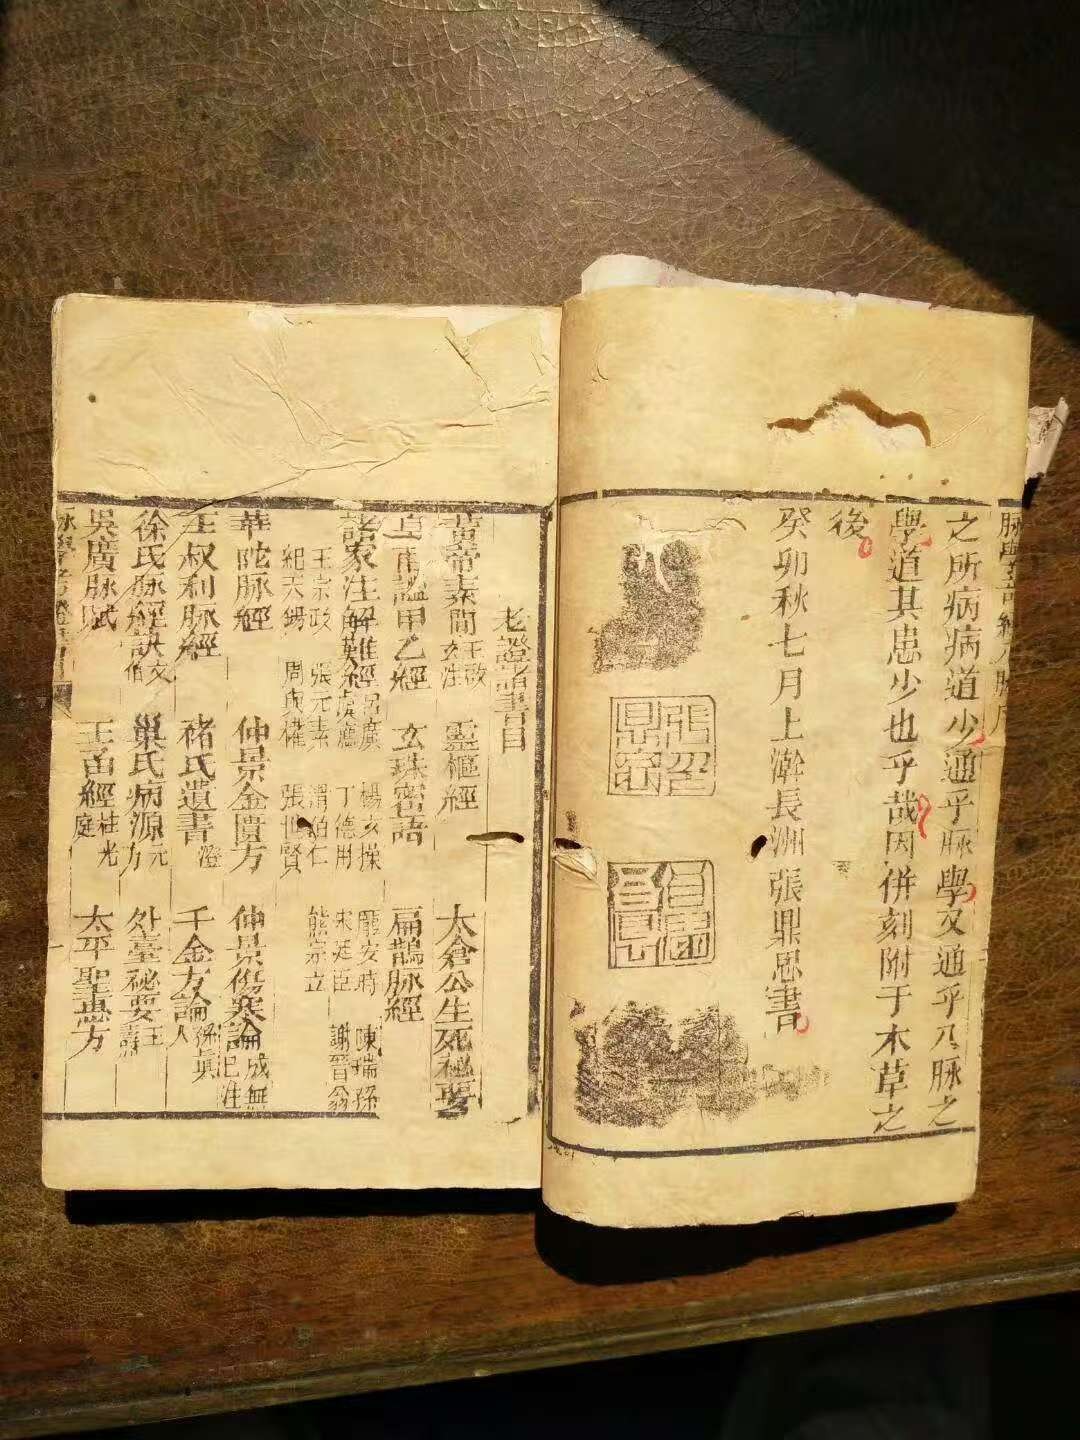 之所病病道少通乎脉學又通乎八脉之
學道其患少也乎哉因併刻附于木草之
後
癸卯秋七月上澣長洲張鼎思書
考證諸書目
黃帝素問王啟玄注 靈樞經 太倉公生死秘要
皇甫謐甲乙經 玄珠密語 扁鵲脉經
諸家注解難經 呂廣 楊玄操 龐安時 陳瑞孫
虞庶 丁德用 宋廷臣 謝晉翁
王宗政 張元素 滑伯仁 熊宗立
紀天錫 周與權 張世賢
華陀脉經 仲景金匱方 仲景傷寒論成無已注
王叔和脉經 褚氏遺書澄 千金方論孫真人
徐氏脉經訣文伯 巢氏病源元方 外臺秘要王壽
吳廣脉賦 王函經杜光庭 太平聖惠方